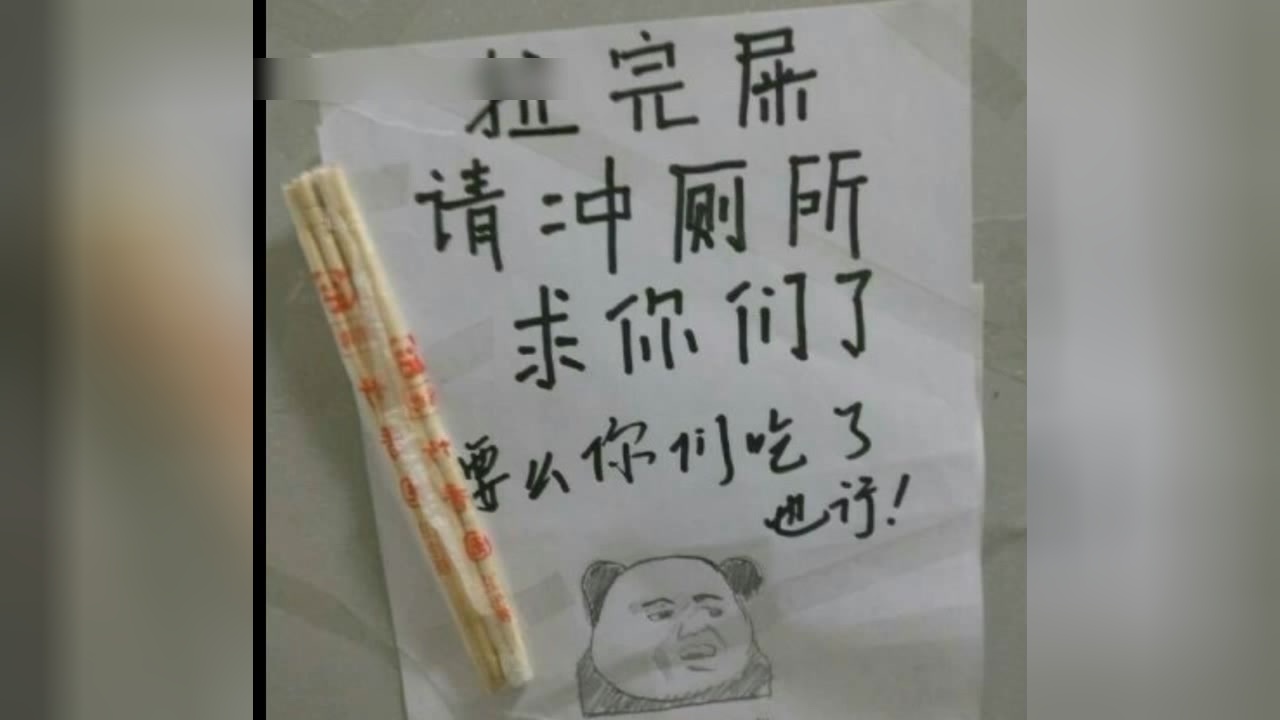 拉完屎
请冲厕所
求你们了
要么你们吃了
也行!